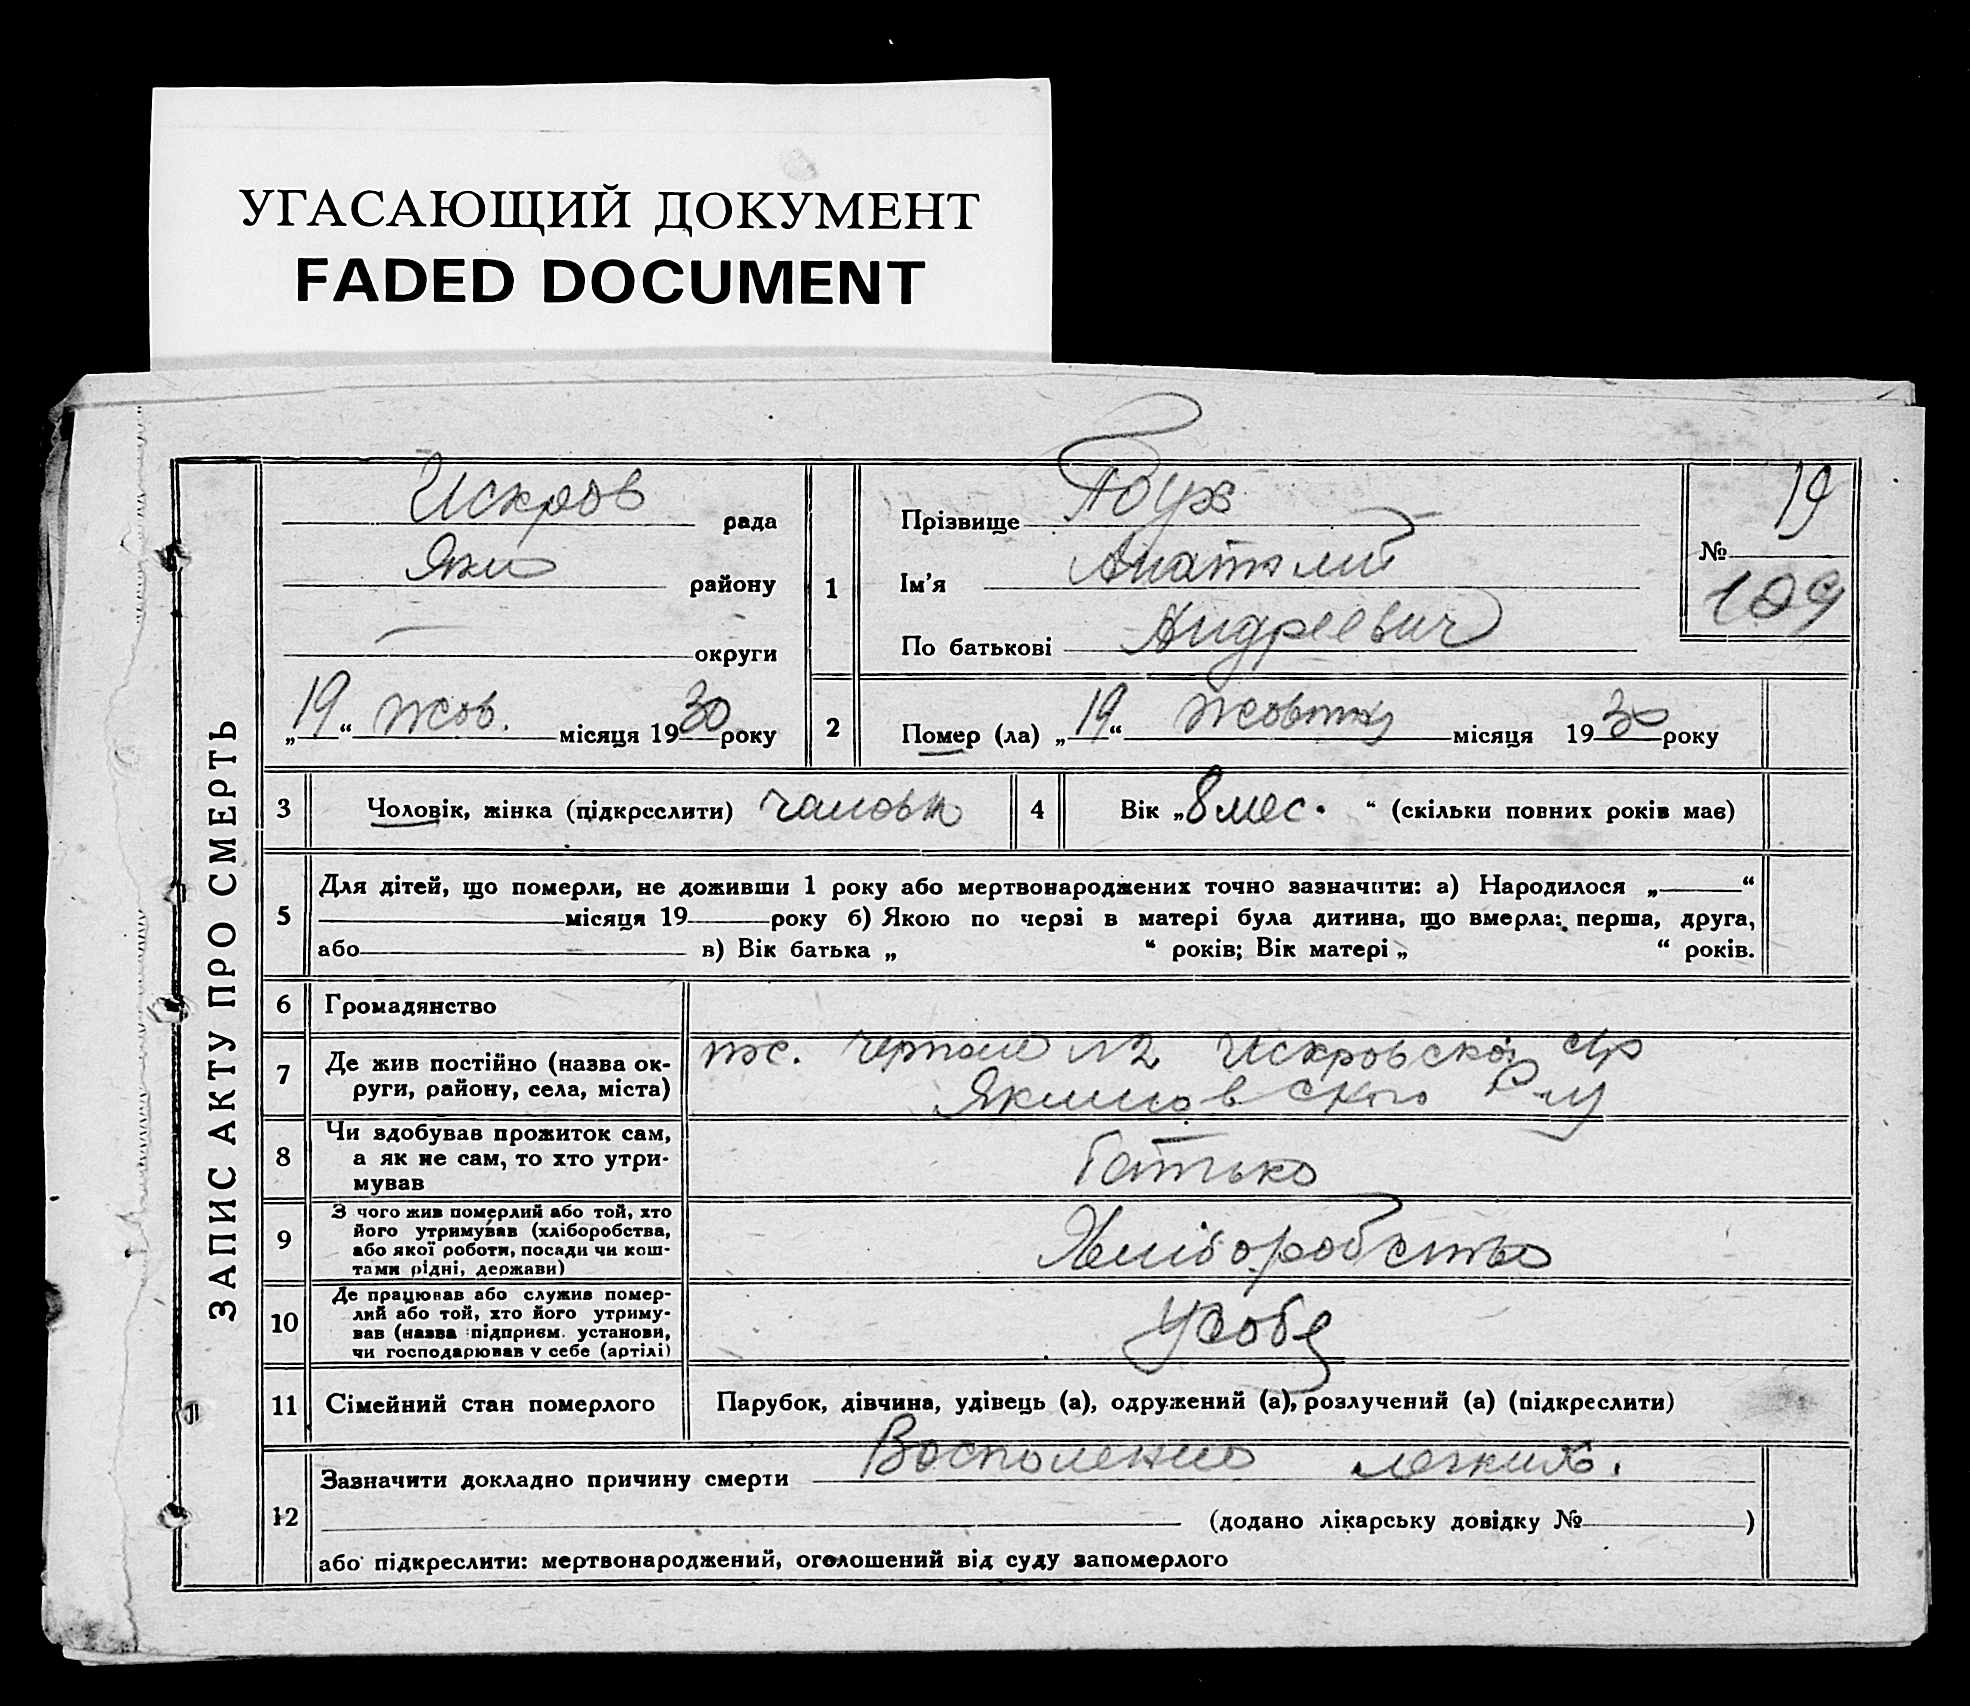 УГАСАЮЩИЙ ДОКУМЕНТ
FADED DOCUMENT
ЗАПИС АКТУ ПРО СМЕРТЬ
Искров рада
Яки району
— округи
„19“ жов. місяця 1930 року
1
Прізвище
Ім'я Анатолий
По батькові Андреевич
№ 19
109
2
Помер (ла) „19“ жовтня місяця 1930 року
3 Чоловік, жінка (підкреслити) чаловік
4 Вік „8 мес. “ (скільки повних років має)
5
Для дітей, що померли, не доживши 1 року або мертвонароджених точно зазначити: а) Народилося „ “
місяця 19 року б) Якою по черзі в матері була дитина, що вмерла: перша, друга,
або в) Вік батька „ “ років; Вік матері „ “ років.
6 Громадянство
7
Де жив постійно (назва ок-
руги, району, села, міста)
№2 Искровской с/р
Якимовского Р-ну
8
Чи здобував прожиток сам,
а як не сам, то хто утри-
мував
батько
9
З чого жив померлий або той, хто
його утримував (хліборобства,
або якої роботи, посади чи кош-
тами рідні, держави)
Хліборобство
10
Де працював або служив помер-
лий або той, хто його утриму-
вав (назва підприєм. установи,
чи господарював у себе (артілі)
У собе
11 Сімейний стан померлого
Парубок, дівчина, удівець (а), одружений (а), розлучений (а) (підкреслити)
12
Зазначити докладно причину смерти Восполение легких.
(додано лікарську довідку № )
або підкреслити: мертвонароджений, оголошений від суду запомерлого